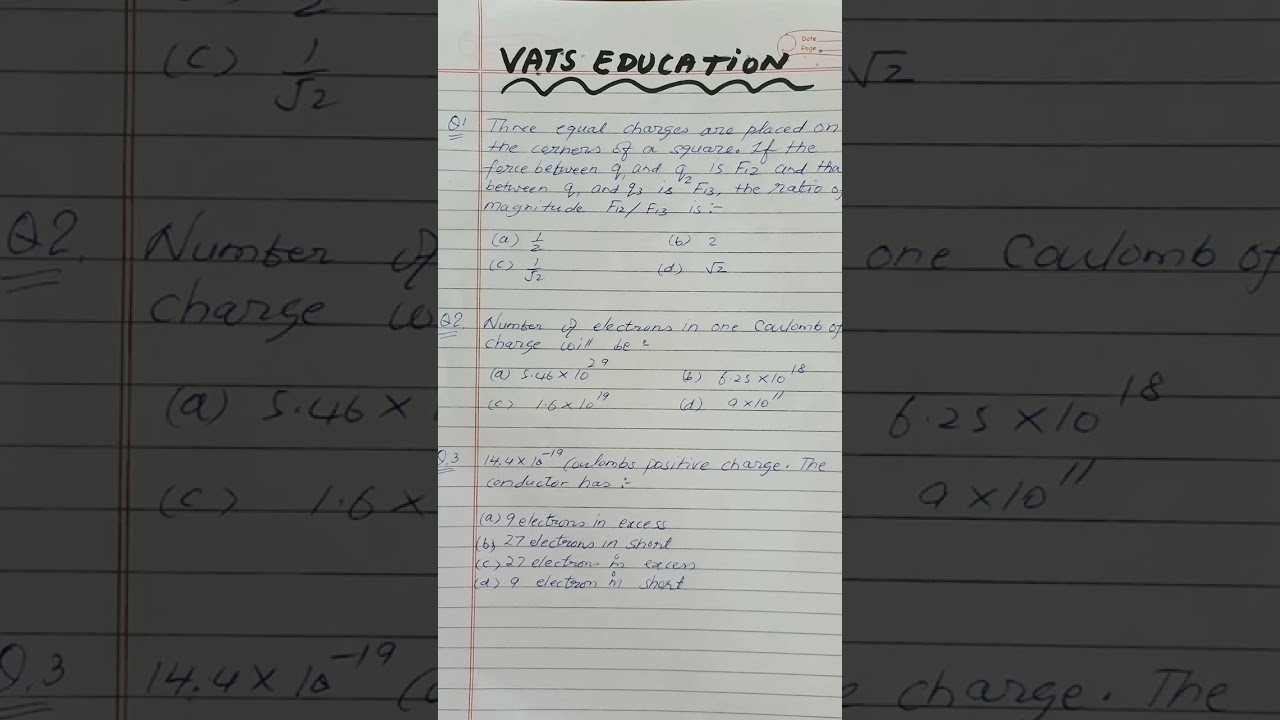 Date
Page
VATS EDUCATION
Q1 Three equal charges are placed on
the corners of a square. If the
force between q1 and q2 is F12 and tha
between q1 and q3 is F13, the ratio of
magnitude F12/F13 is:-
(a) 1/2 (b) 2
(c) 1/√2 (d) √2
Q2. Number of electrons in one Coulomb of
charge will be:
(a) 5.46 × 10^29 (b) 6.25 × 10^18
(c) 1.6 × 10^19 (d) 9 × 10^11
Q.3 14.4 × 10^-19 Coulombs positive charge. The
conductor has:-
(a) 9 electrons in excess
(b) 27 electrons in short
(c) 27 electrons in excess
(d) 9 electron in short